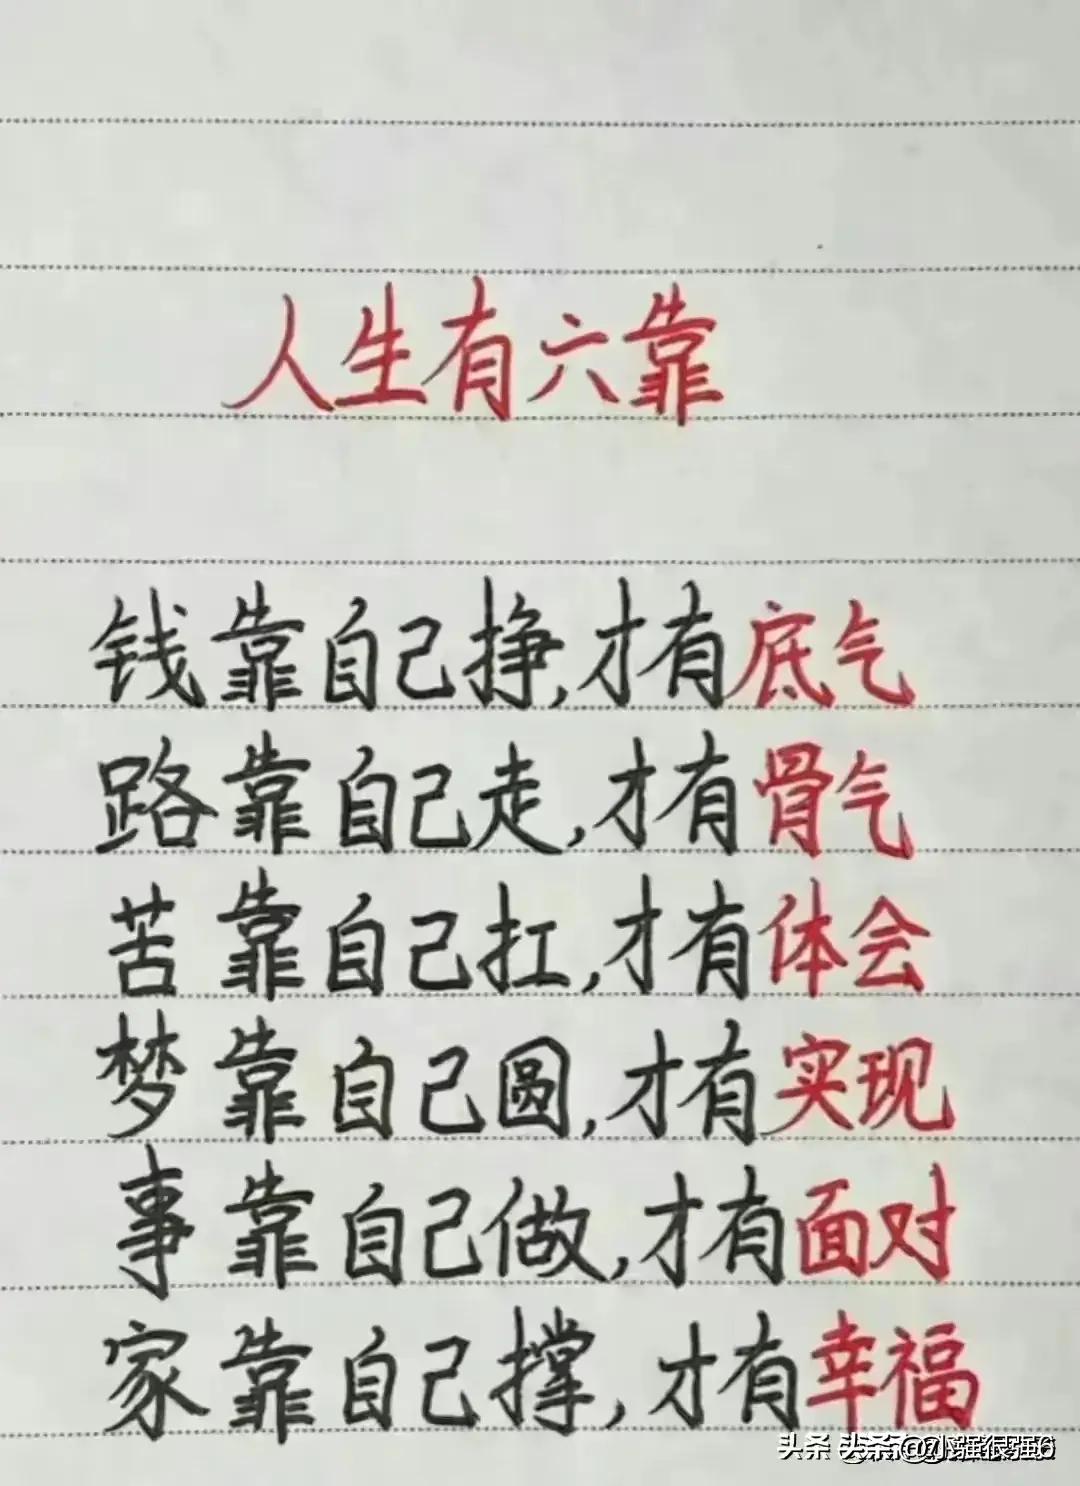 人生有六靠
钱靠自己挣,才有底气
路靠自己走,才有骨气
苦靠自己扛,才有体会
梦靠自己圆,才有实现
事靠自己做,才有面对
家靠自己撑,才有幸福
头条 @小强很强6